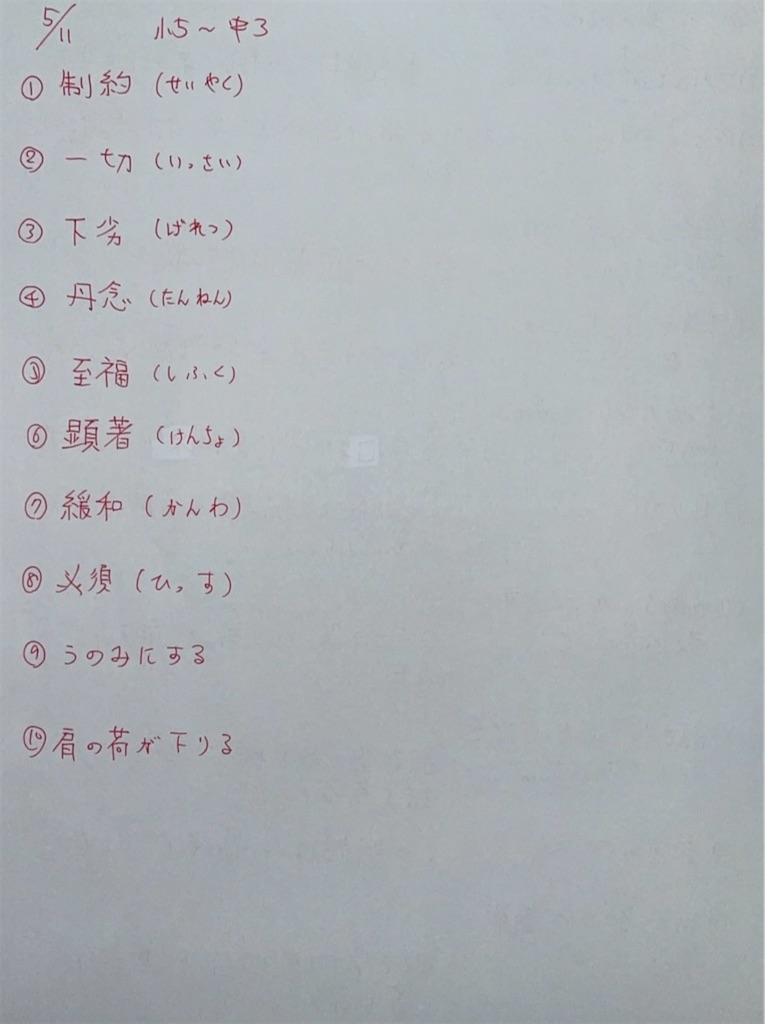 5/11 小5～中3
① 制約 (せいやく)
② 一切 (いっさい)
③ 下劣 (げれつ)
④ 丹念 (たんねん)
⑤ 至福 (しふく)
⑥ 顕著 (けんちょ)
⑦ 緩和 (かんわ)
⑧ 必須 (ひっす)
⑨ うのみにする
⑩ 肩の荷が下りる